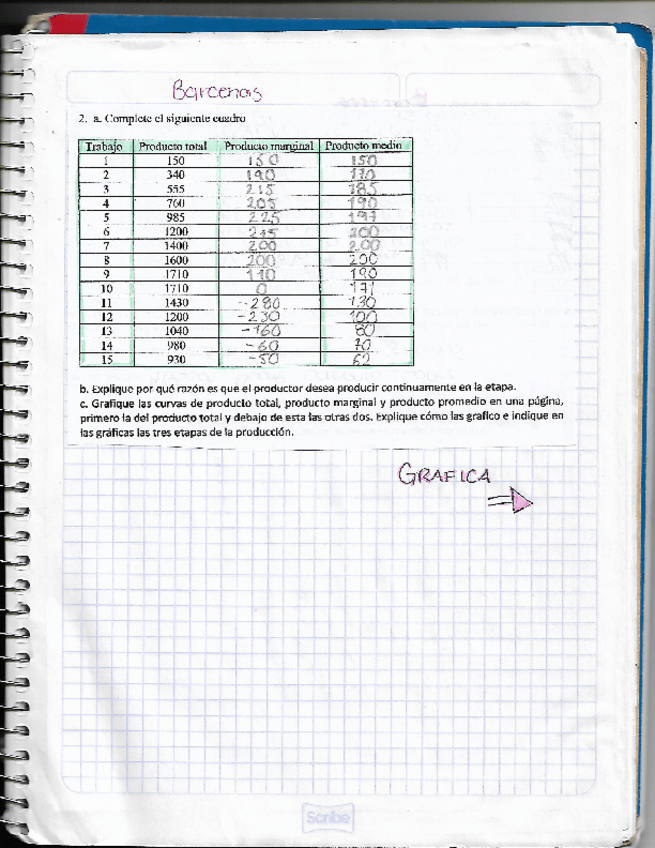 Barcenas
2. a. Complete el siguiente cuadro
Trabajo Producto total Producto marginal Producto medio
1 150 150 150
2 340 190 170
3 555 215 185
4 760 205 190
5 985 225 197
6 1200 215 200
7 1400 200 200
8 1600 200 200
9 1710 110 190
10 1710 0 171
11 1430 -280 130
12 1200 -230 100
13 1040 -160 80
14 980 -60 70
15 930 -50 62
b. Explique por qué razón es que el productor desea producir continuamente en la etapa.
c. Grafique las curvas de producto total, producto marginal y producto promedio en una página,
primero la del producto total y debajo de esta las otras dos. Explique cómo las grafico e indique en
las gráficas las tres etapas de la producción.
GRAFICA
Scribe